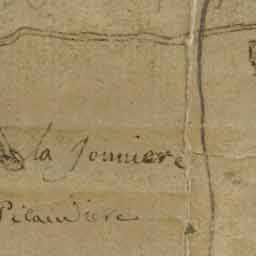 la Jonniere
Pilaudiere